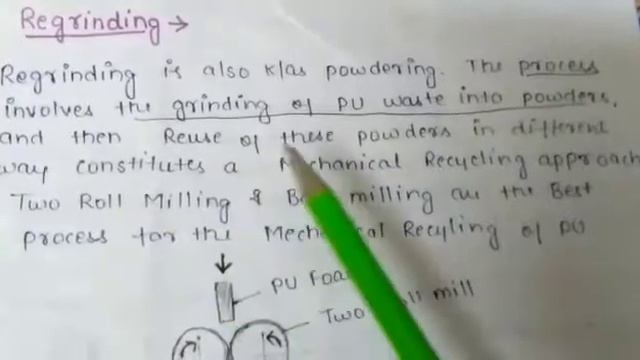 Regrinding →
Regrinding is also k/as powdering. The process
involves the grinding of PU waste into powders,
and then Reuse of these powders in different
way constitutes a Mechanical Recycling approach
Two Roll Milling & milling are the Best
process for the Mechanical Recyling of PU
PU Foam
Two Roll mill